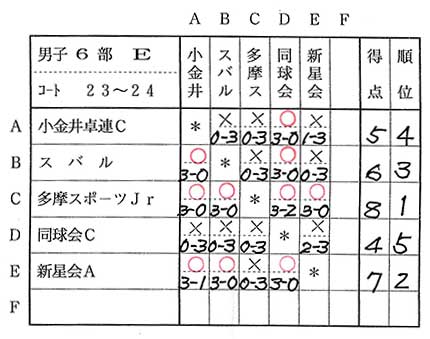 A B C D E F
男子6部 E 小金井 スバル 多摩ス 同球会 新星会 得点 順位
コート 23～24
A 小金井卓連C * × 0-3 × 0-3 ○ 3-0 × 1-3 5 4
B スバル ○ 3-0 * × 0-3 ○ 3-0 × 0-3 6 3
C 多摩スポーツJr ○ 3-0 ○ 3-0 * ○ 3-2 ○ 3-0 8 1
D 同球会C × 0-3 × 0-3 × 0-3 * × 2-3 4 5
E 新星会A ○ 3-1 ○ 3-0 × 0-3 ○ 3-0 * 7 2
F